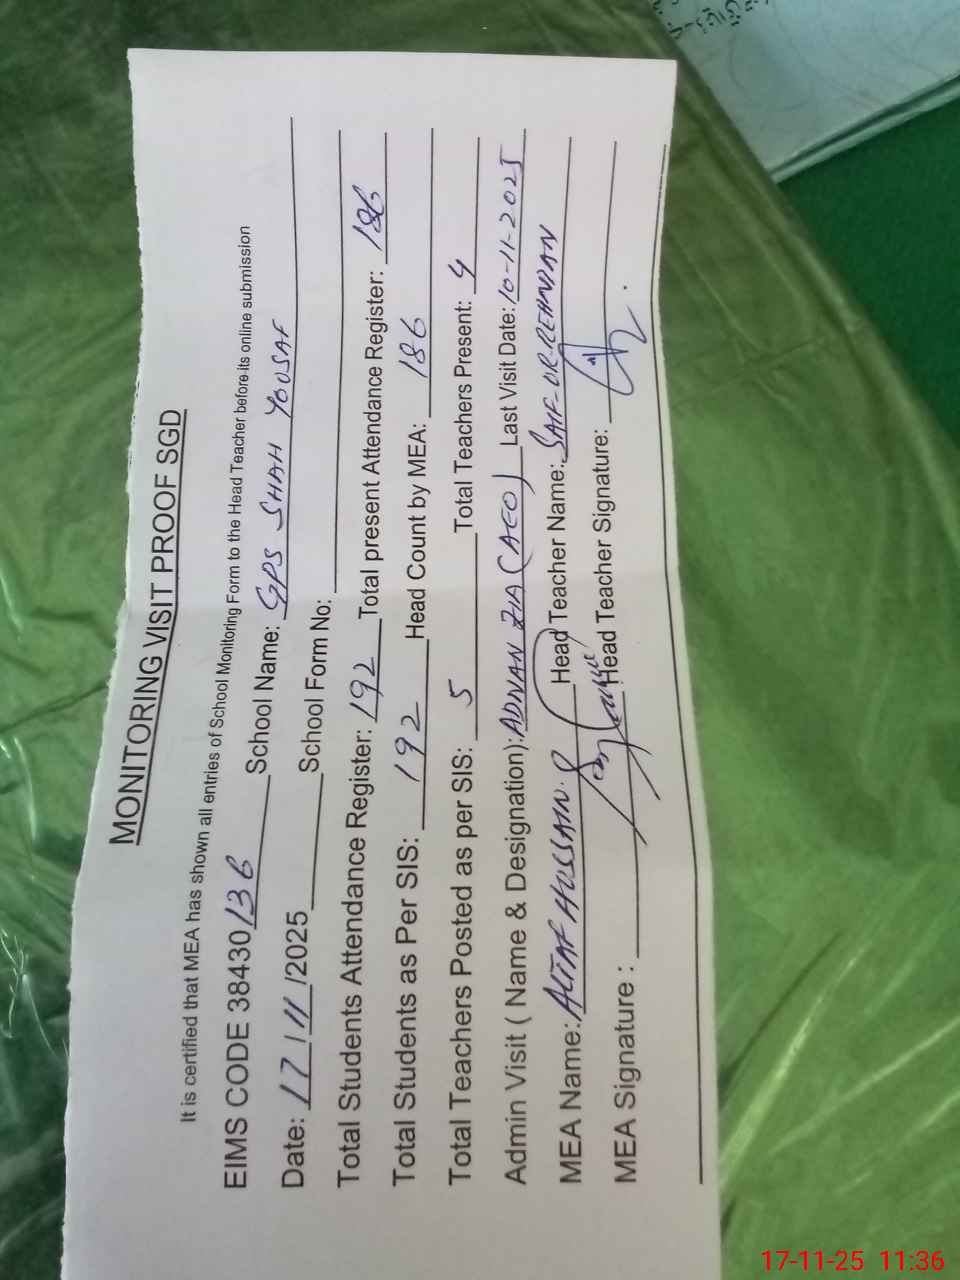 MONITORING VISIT PROOF SGD
It is certified that MEA has shown all entries of School Monitoring Form to the Head Teacher before its online submission
EIMS CODE 38430136 School Name: GPS SHAH YOUSAF
Date: 17/11/2025 School Form No:
Total Students Attendance Register: 192 Total present Attendance Register: 186
Total Students as Per SIS: 192 Head Count by MEA: 186
Total Teachers Posted as per SIS: 5 Total Teachers Present: 4
Admin Visit ( Name & Designation): ADNAN ZIA (AEO) Last Visit Date: 10-11-2025
MEA Name: ALTAF HUSSAIN. Head Teacher Name: SAIF-UR-REHMAN
MEA Signature : Head Teacher Signature:
17-11-25 11:36